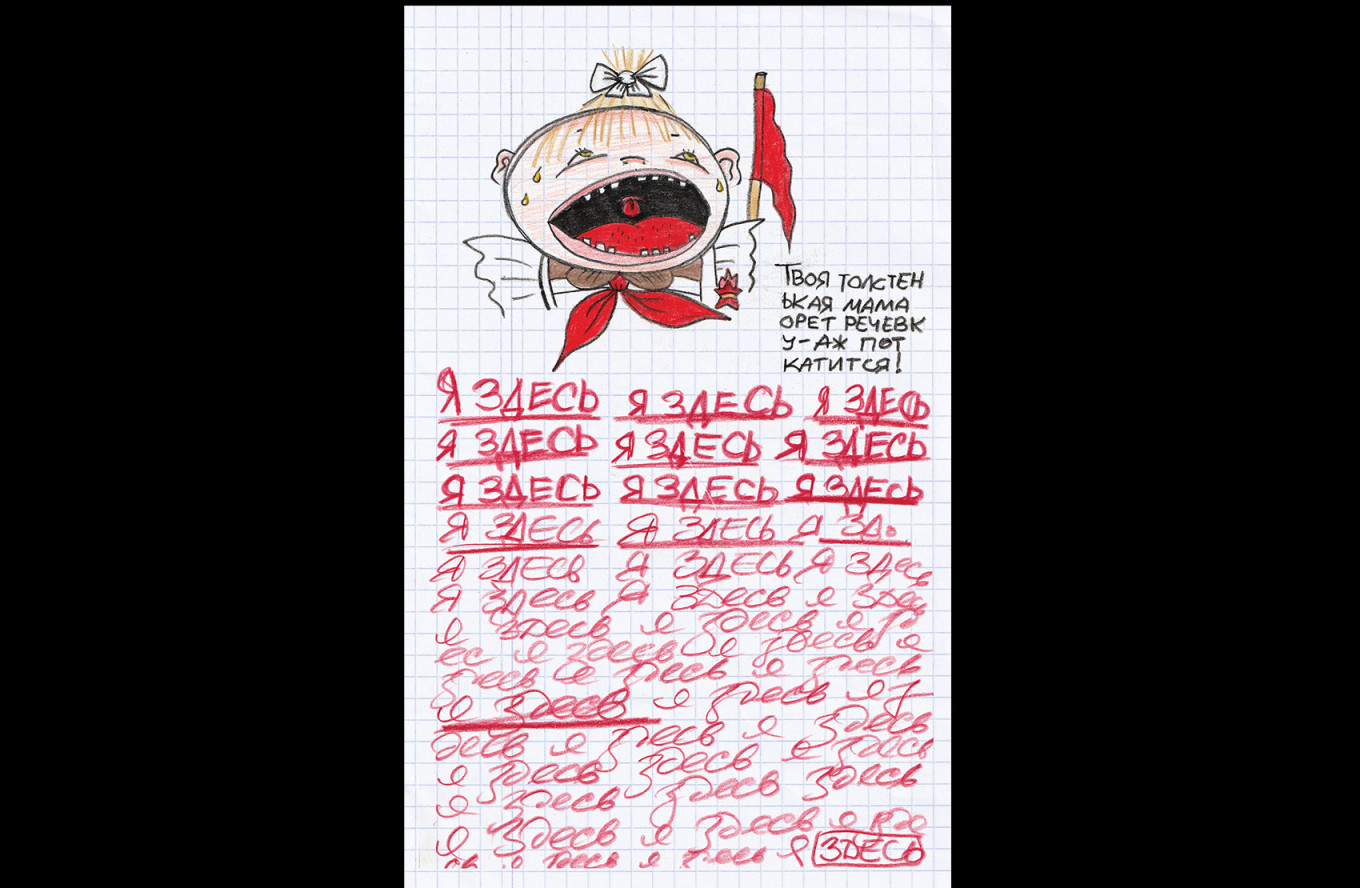 ТВОЯ ТОЛСТЕН
ЬКАЯ МАМА
ОРЕТ РЕЧЕВК
У-АЖ ПОТ
КАТИТСЯ!
Я ЗДЕСЬ Я ЗДЕСЬ Я ЗДЕСЬ
Я ЗДЕСЬ Я ЗДЕСЬ Я ЗДЕСЬ
Я ЗДЕСЬ Я ЗДЕСЬ Я ЗДЕСЬ
Я ЗДЕСЬ Я ЗДЕСЬ Я
Я ЗДЕСЬ Я ЗДЕСЬ Я ЗДЕСЬ
Я ЗДЕСЬ Я ЗДЕСЬ Я ЗДЕСЬ
я здесь я здесь я
ес я здесь я здесь я
здесь я здесь я здесь
я здесь я здесь я
десь я здесь я здесь
я здесь здесь я здесь
я здесь здесь здесь
я здесь я здесь я
здесь я здесь я ЗДЕСЬ